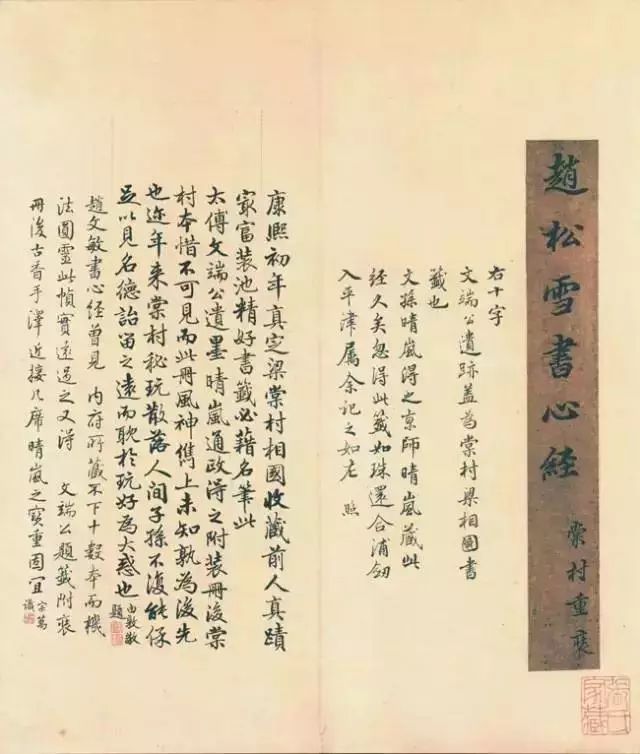 趙松雪書心經
棠村重裝
右十字
文端公遺跡蓋為棠村梁相國書
籤也
文孫晴嵐得之京師晴嵐藏此
經久矣忽得此籤如珠還合浦劒
入平津屬余記之如右 照
康熙初年真定梁棠村相國收藏前人真蹟
冣富裝池精好書籤必藉名筆此
太傅文端公遺墨晴嵐通政得之附裝冊後棠
村本惜不可見而此冊風神儁上未知孰為後先
也近年来棠村秘玩散落人間子孫不復能保
足以見名德詒留之遠而耽於玩好為大惑也
由敦敬
題
趙文敏書心經曾見 內府所藏不下十數本而機
法圓靈此幀實遠過之又得 文端公題籤附裝
冊後古香手澤近接几席晴嵐之寶重固宜
宗萬
識
張氏
家藏